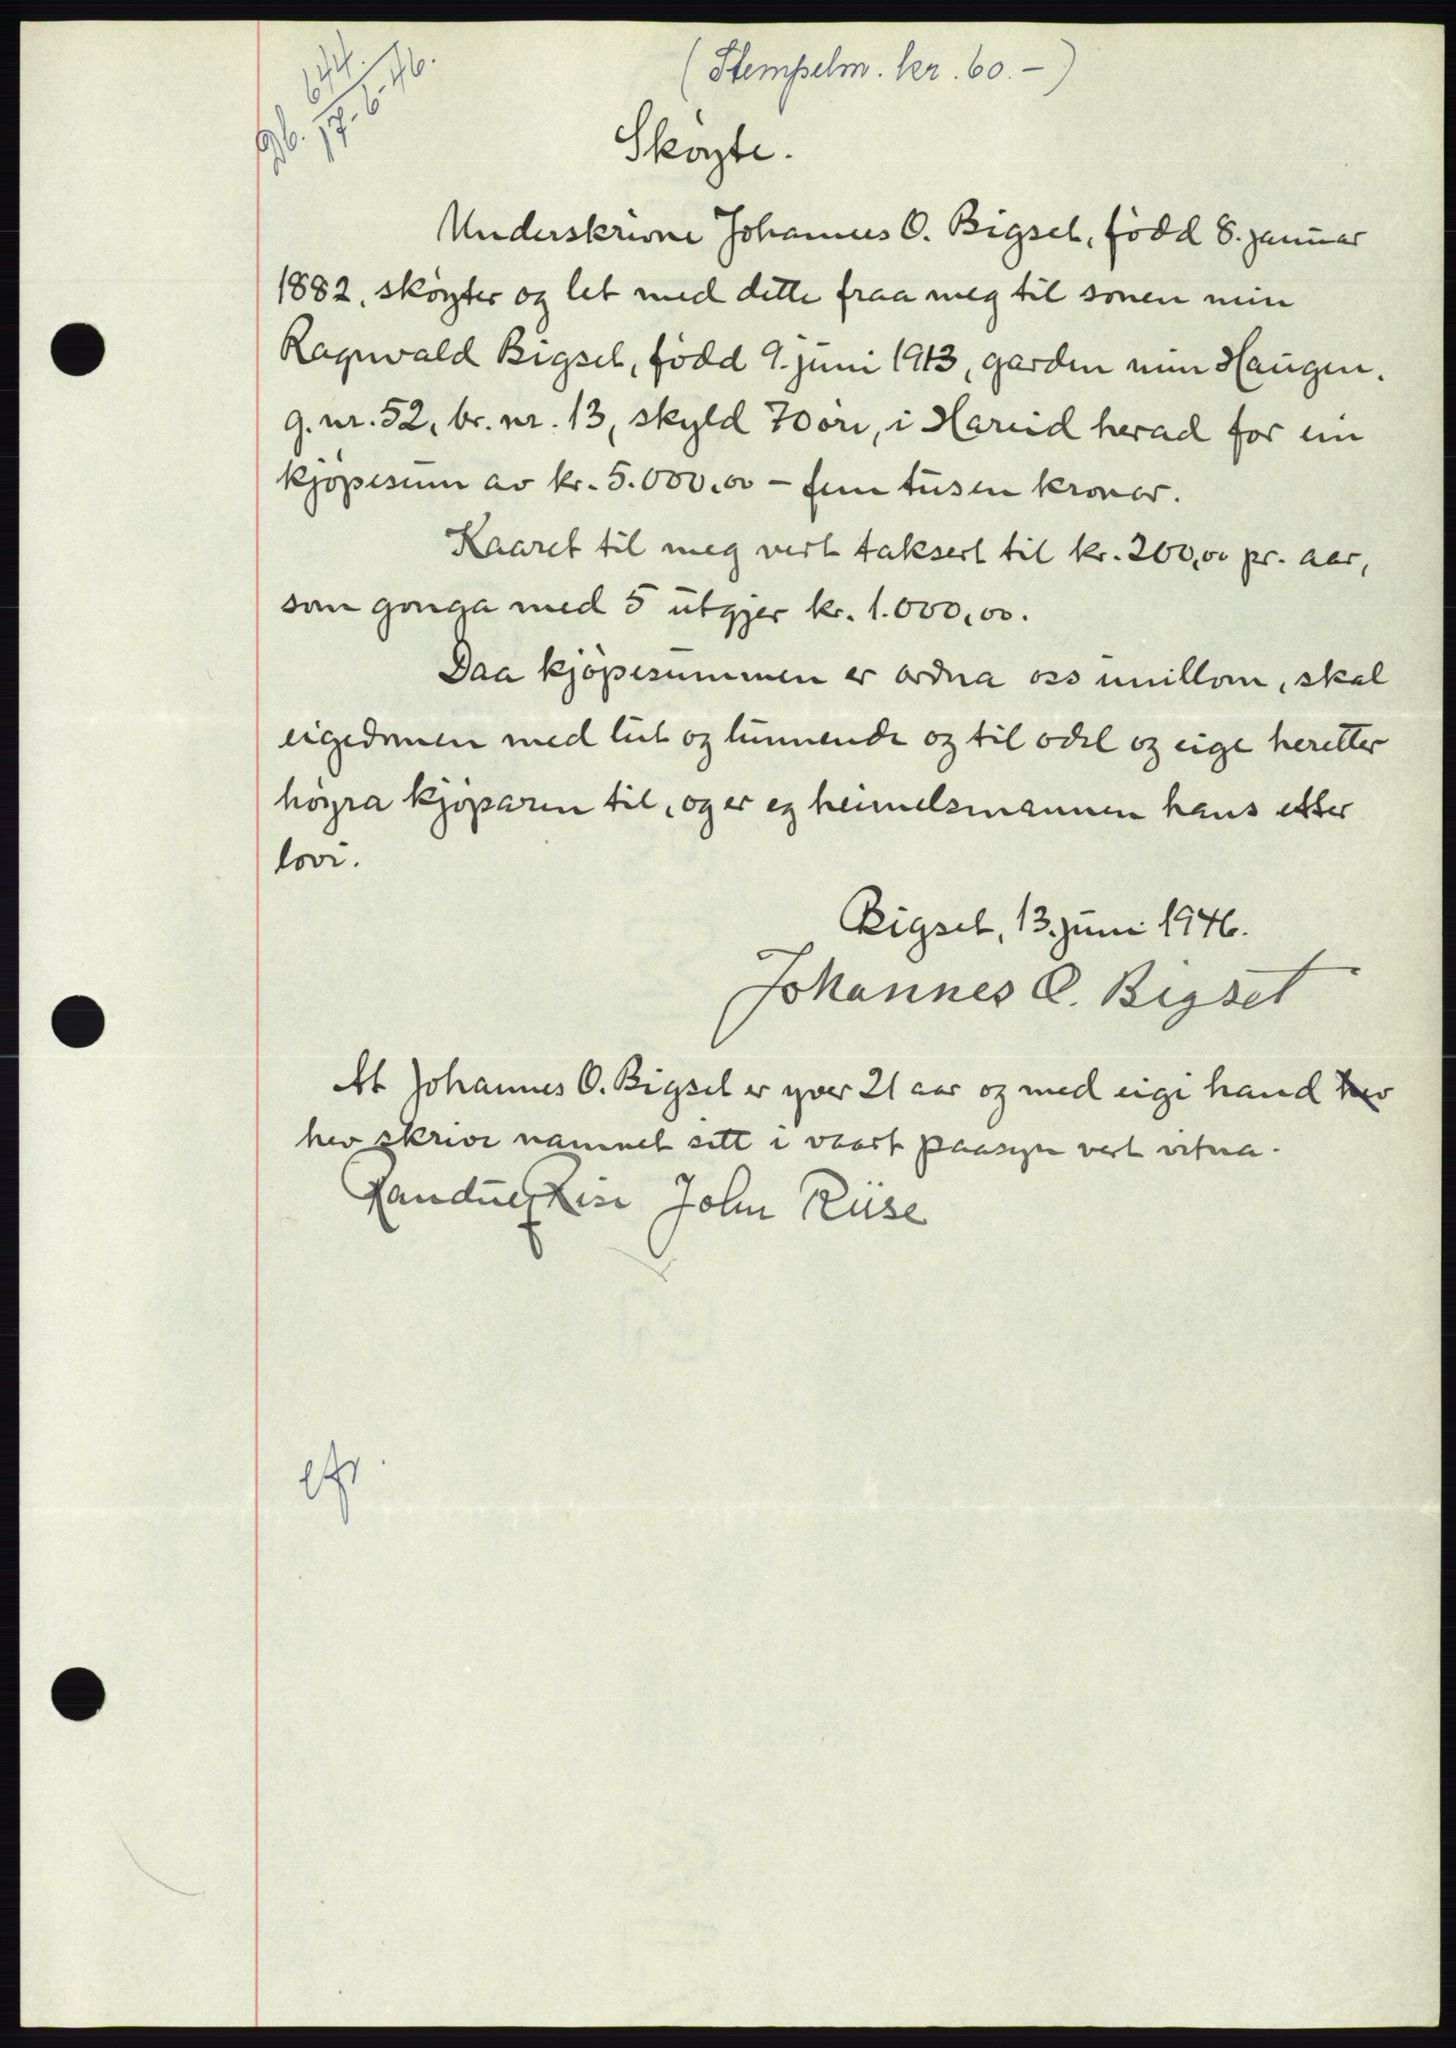 Db. 644.
17-6-46.
(Stempelm. kr. 60.-)
Skøyte.
Underskrivne Johannes O. Bigset, fødd 8. januar
1882, skøyter og let med dette fraa meg til sonen min
Ragnvald Bigset, fødd 9. juni 1913, garden min Haugen,
g. nr. 52, br. nr. 13, skyld 70 øre, i Hareid herad for ein
kjøpesum av kr. 5.000,00 – fem tusen kroner.
Kaaret til meg vert taksert til kr. 200,00 pr. aar,
som gonga med 5 utgjer kr. 1.000,00.
Daa kjøpesummen er ordna oss imillom, skal
eigedomen med lut og lunnende og til odel og eige heretter
høyra kjøparen til, og er eg heimelsmannen hans etter
lovi.
Bigset, 13. juni 1946.
Johannes O. Bigset
At Johannes O. Bigset er yver 21 aar og med eigi hand hev
hev skrive namnet sitt i vaart paasyn vert vitna.
Randveg Rise John Riise